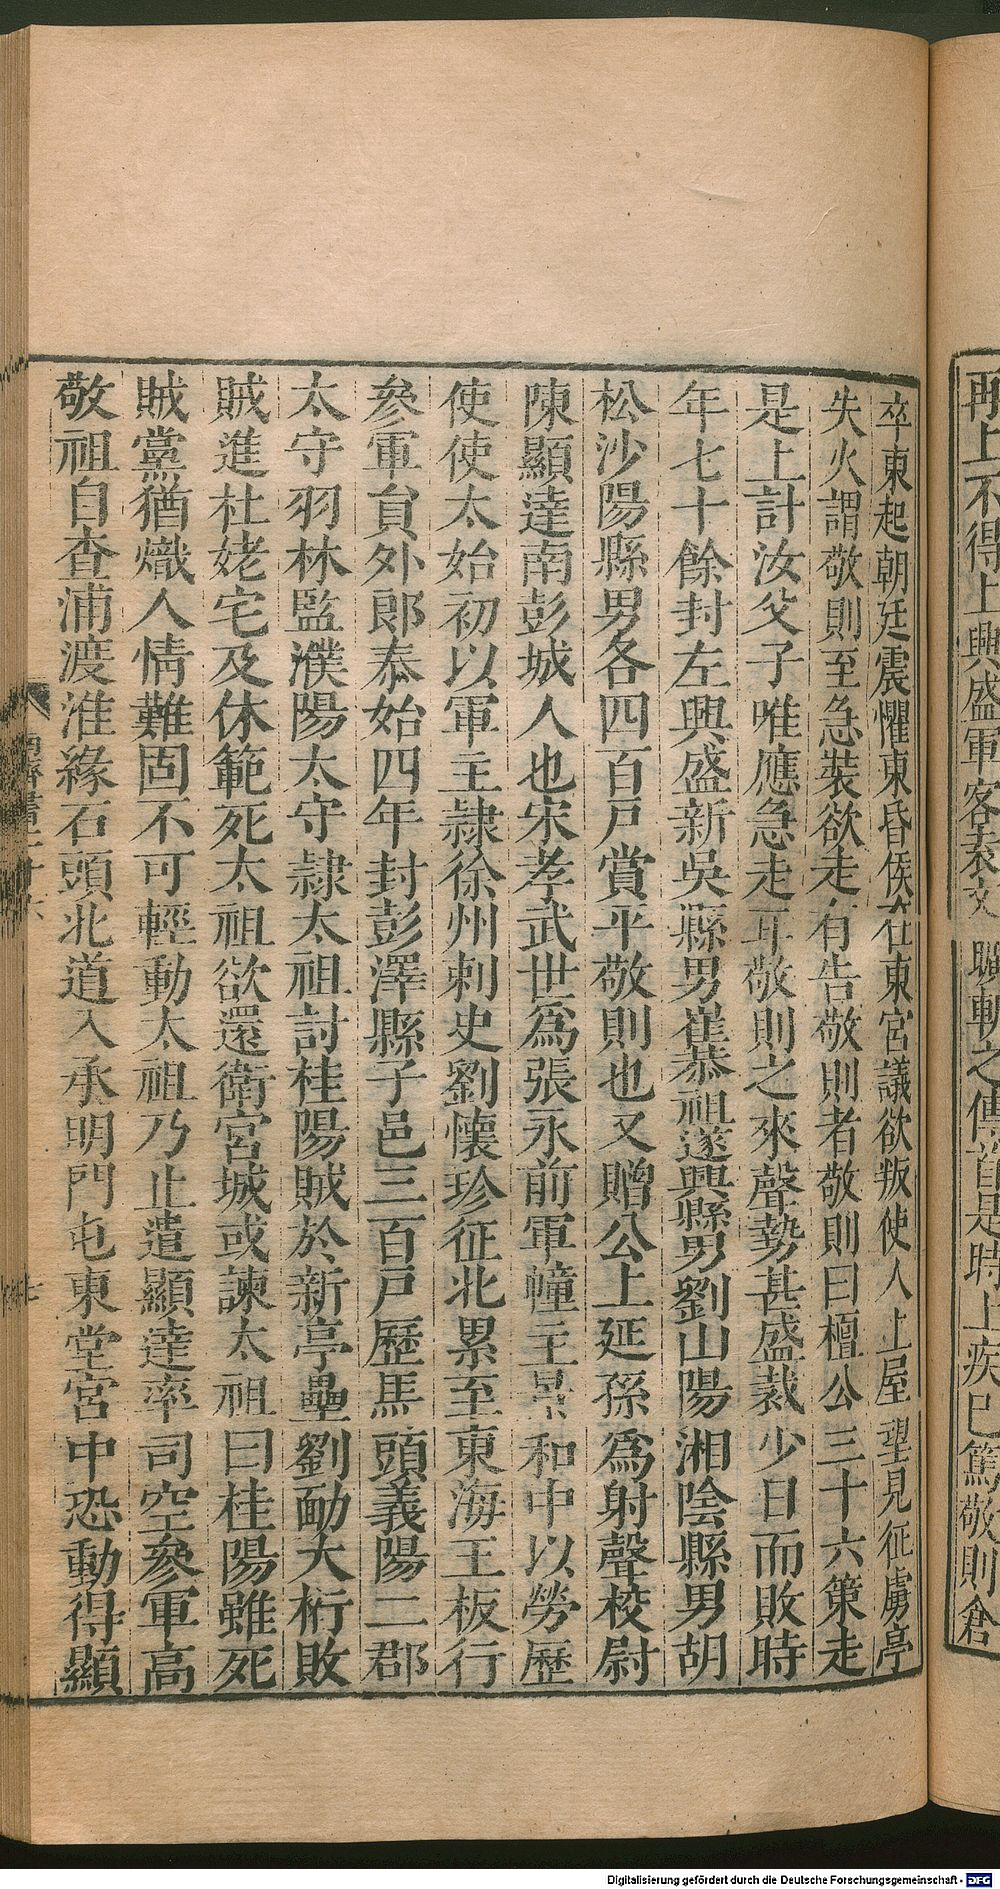 再上不得上興盛軍客袁文曠斬之傳首是時上疾已篤敬則倉
卒東起朝廷震懼東昏侯在東宮議欲叛使人上屋望見征虜亭
失火謂敬則至急裝欲走有告敬則者敬則曰檀公三十六策走
是上計汝父子唯應急走耳敬則之來聲勢甚盛裁少日而敗時
年七十餘封左興盛新吳縣男崔恭祖遂興縣男劉山陽湘陰縣男胡
松沙陽縣男各四百戶賞平敬則也又贈公上延孫爲射聲校尉
陳顯達南彭城人也宋孝武世爲張永前軍幢主景和中以勞歷
使使太始初以軍主隷徐州刺史劉懷珍征北累至東海王板行
參軍員外郎泰始四年封彭澤縣子邑三百戶歷馬頭義陽二郡
太守羽林監濮陽太守隷太祖討桂陽賊於新亭壘劉勔大桁敗
賊進杜姥宅及休範死太祖欲還衛宮城或諫太祖曰桂陽雖死
賊黨猶熾人情難固不可輕動太祖乃止遣顯達率司空參軍高
敬祖自查浦渡淮緣石頭北道入承明門屯東堂宮中恐動得顯
Digitalisierung gefördert durch die Deutsche Forschungsgemeinschaft - DFG